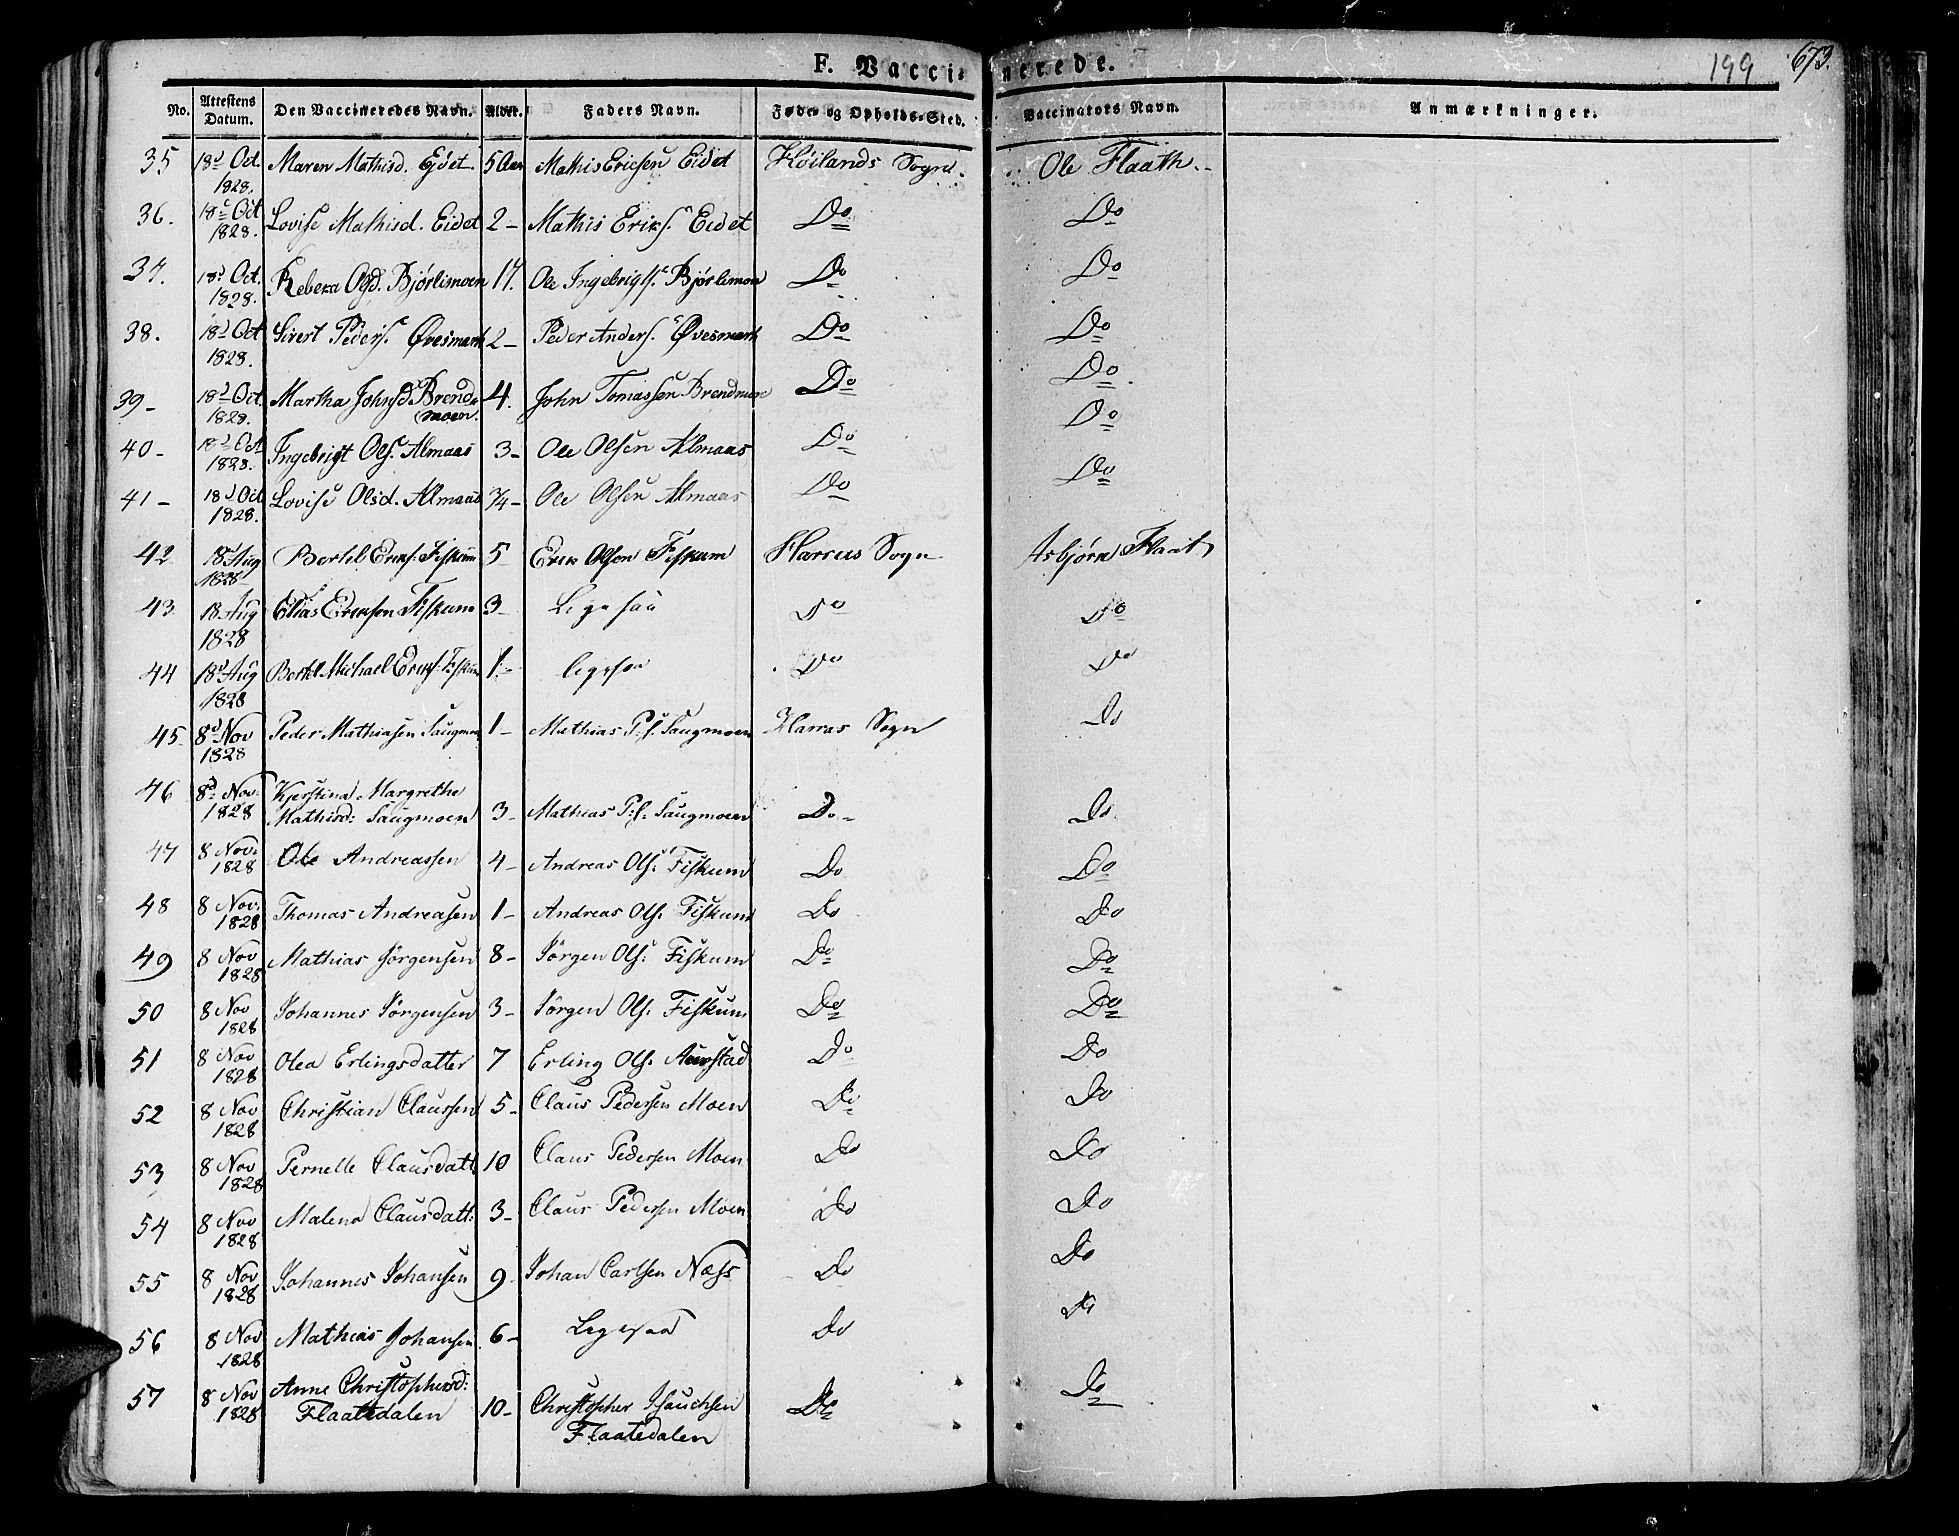 F. Vaccinerede.
199 673.
No. Attestens Datum. Den Vaccineredes Navn. Alder. Faders Navn. Føde- og Opholds-Sted. Vaccinators Navn. Anmærkninger.
35 18d Oct 1828. Maren Mathisd. Eidet 5 Aar Mathis Ericsen Eidet Höilands Sogn. Ole Flaath.
36. 18d Oct 1828. Lovise Mathisd. Eidet 2 - Mathis Eriks. Eidet Do Do
37. 18d Oct. 1828. Rebeka Olsd. Bjørlimoen 17. Ole Ingebrigts. Bjørlimoen Do Do
38. 18d Oct 1828. Sivert Peders. Øvesmark 2 - Peder Anders. Øvesmark Do Do
39 - 18d Oct. 1828. Martha Johnsd Brend- 4. John Tomassen Brendmoen Do Do
moen.
40 - 18d Oct 1828. Ingebrigt Ols. Almaas 3 - Ole Olsen Almaas Do Do
41 - 18d Oct 1828. Lovise Olsd. Almaas 3/4 - Ole Olsen Almaas Do Do
42 18d Aug 1828 Bertel Eriks. Fiskum 5 Erik Olson Fiskum Harrus Sogn Asbjørn Flaat
43 18 Aug 1828 Elias Erikson Fiskum 3 - Ligesaa Do Do
44 18d Aug 1828 Bertel Michael Eriks: Fiskum 1 - ligesaa Do Do
45 8d Nov 1828 Peder Mathiasen Saugmoen 1 - Mathias P. s. Saugmoen Harras Sogn Do
46 8d Nov. 1828 Kjerstina Margrethe
Mathisd: Saugmoen 3 - Mathias P. s. Saugmoen Do - Do
47 8 Nov. 1828 Ole Andreassen 4 - Andreas Ols: Fiskum Do Do
48 8 Nov. 1828 Thomas Andreasen 1 - Andreas Ols. Fiskum Do Do
49 8 Nov 1828 Mathias Jörgensen 8 - Jörgen Ols: Fiskum Do Do
50 8 Nov 1828 Johannes Jörgensen 3 - Jörgen Ols. Fiskum Do Do
51 8 Nov 1828 Olea Erlingsdatter 7 Erling Ols. Aunstad Do Do
52 8 Nov 1828 Christian Claussen 5 - Claus Pedersen Moen Do Do
53 8 Nov 1828 Pernelle Clausdatt 10 Claus Pedersen Moen Do Do
54 8 Nov 1828 Malena Clausdatt: 3 - Claus Pedersen Moen Do Do
55 8 Nov 1828 Johannes Johansen 9 - Johan Carlsen Næss Do Do
56 8 Nov 1828 Mathias Johansen 6 - Ligesaa Do Do
57 8 Nov 1828 Anne Christophersd: 10 - Christopher Isauchsen Do Do
Flaatedalen Flaatedalen